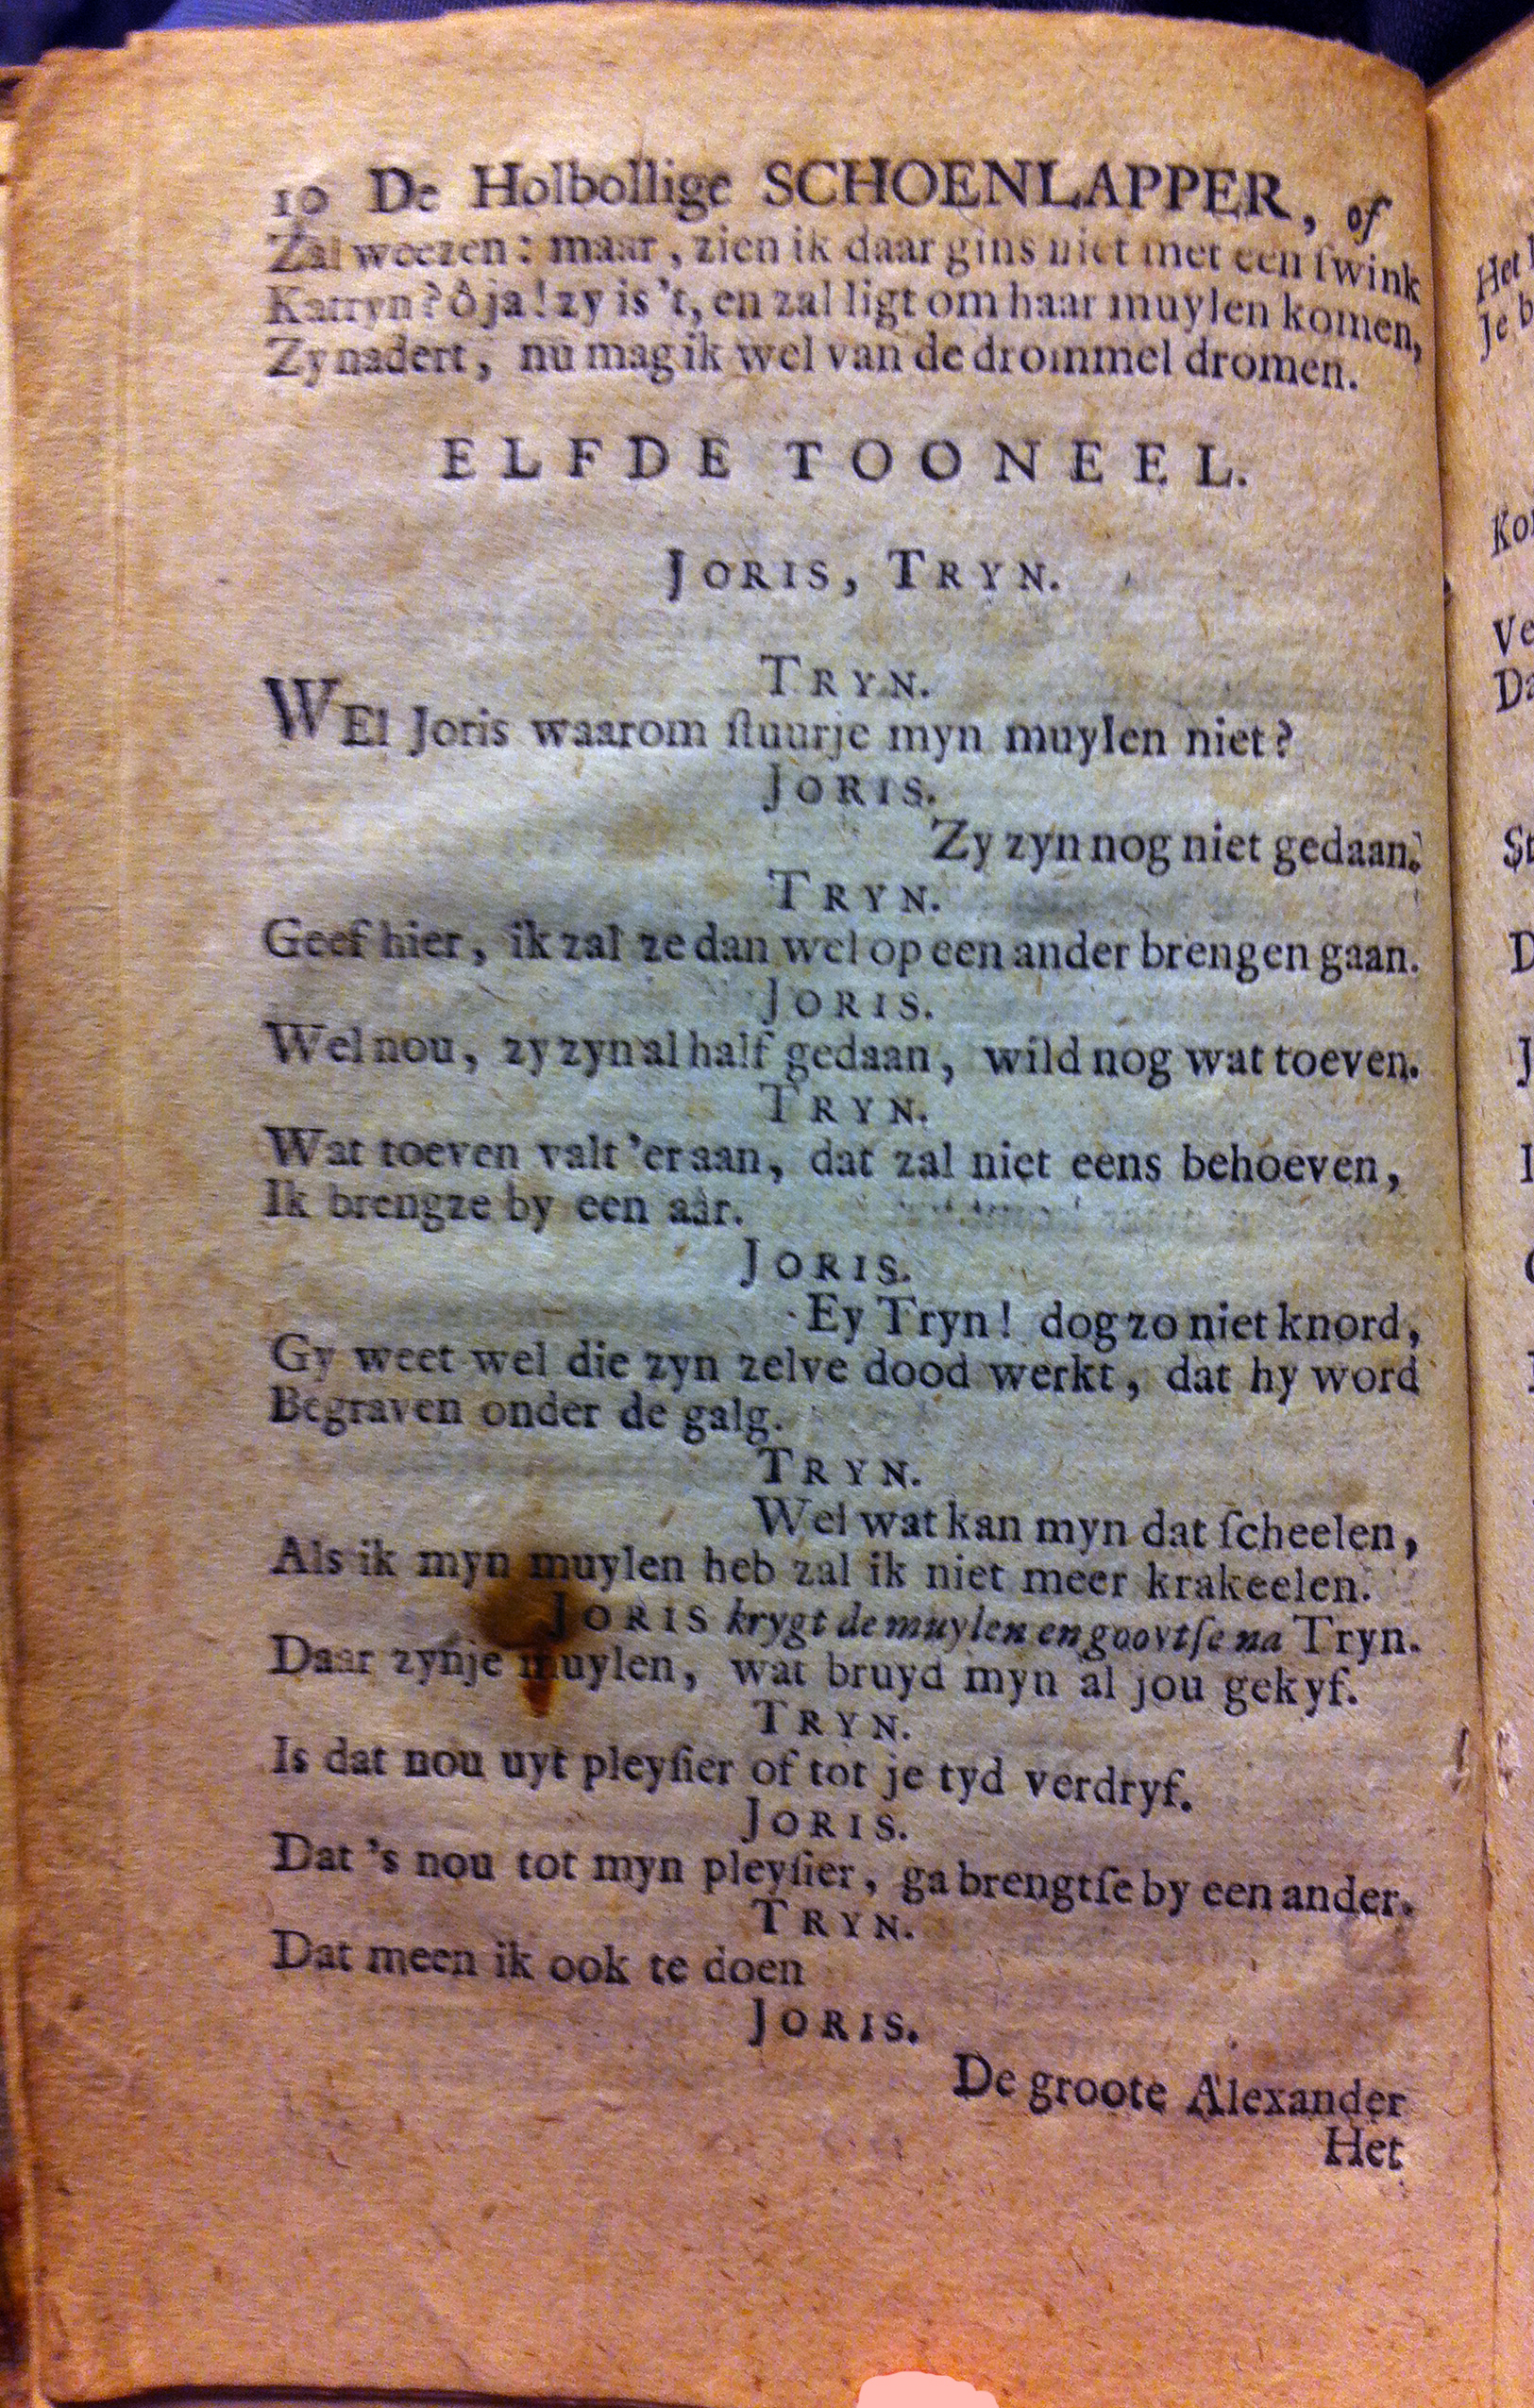 10 De Holbollige SCHOENLAPPER, of
Zal woezen: maar, zien ik daar gins niet met een ſwink
Katryn? ô ja! zy is 't, en zal ligt om haar muylen komen,
Zy nadert, nu mag ik wel van de drommel dromen.
ELFDE TOONEEL.
JORIS, TRYN.
TRYN.
WEl Joris waarom ſtuurje myn muylen niet?
JORIS.
Zy zyn nog niet gedaan.
TRYN.
Geef hier, ik zal ze dan wel op een ander brengen gaan.
JORIS.
Wel nou, zy zyn al half gedaan, wild nog wat toeven.
TRYN.
Wat toeven valt 'er aan, dat zal niet eens behoeven,
Ik brengze by een aâr.
JORIS.
Ey Tryn! dog zo niet knord,
Gy weet wel die zyn zelve dood werkt, dat hy word
Begraven onder de galg.
TRYN.
Wel wat kan myn dat ſcheelen,
Als ik myn muylen heb zal ik niet meer krakeelen.
JORIS krygt de muylen en goovtſe na Tryn.
Daar zynje muylen, wat bruyd myn al jou gekyf.
TRYN.
Is dat nou uyt pleyſier of tot je tyd verdryf.
JORIS.
Dat 's nou tot myn pleyſier, ga brengtſe by een ander.
TRYN.
Dat meen ik ook te doen
JORIS.
De groote Alexander
Het